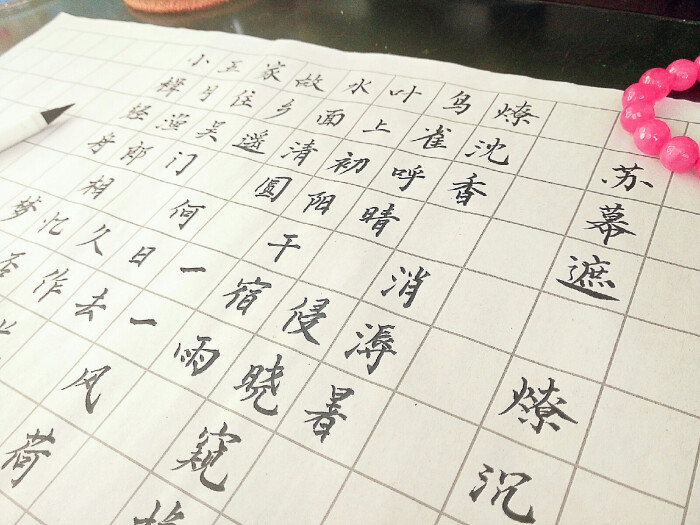 苏幕遮 燎沉
燎沈香 消溽暑
鸟雀呼晴 侵晓窥
叶上初阳干宿雨
水面清圆 一一风荷
故乡遥 何日去
家住吴门 久作
五月渔郎相忆
小楫轻舟 梦